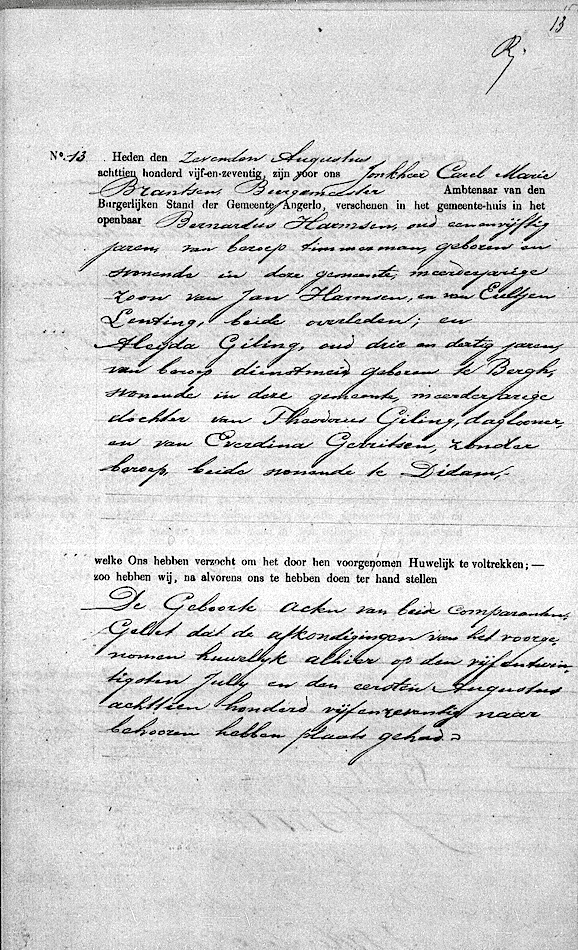 13
Nº. 13 . Heden den zevenden Augustus
achttien honderd vijf-en-zeventig, zijn voor ons Jonkheer Carel Marie
Brantsen, Burgemeester Ambtenaar van den
Burgerlijken Stand der Gemeente Angerlo, verschenen in het gemeente-huis in het
openbaar Bernardus Harmsen, oud eenenvijftig
jaren, van beroep timmerman, geboren en
wonende in deze gemeente, meerderjarige
zoon van Jan Harmsen, en van Eeltjen
Lenting, beide overleden; en
Aleyda Giling, oud drie en dertig jaren,
van beroep dienstmeid geboren te Bergh,
wonende in deze gemeente, meerderjarige
dochter van Theodorus Giling, daglooner,
en van Everdina Gerritsen, zonder
beroep, beide wonende te Didam,-
welke Ons hebben verzocht om het door hen voorgenomen Huwelijk te voltrekken; —
zoo hebben wij, na alvorens ons te hebben doen ter hand stellen
De Geboorte Acten van beide comparanten,
Gelet dat de afkondigingen van het voorge
nomen huwelijk alhier op den vijfentwin-
tigsten July en den eersten Augustus
achttien honderd vijfenzeventig naar
behooren hebben plaats gehad.=